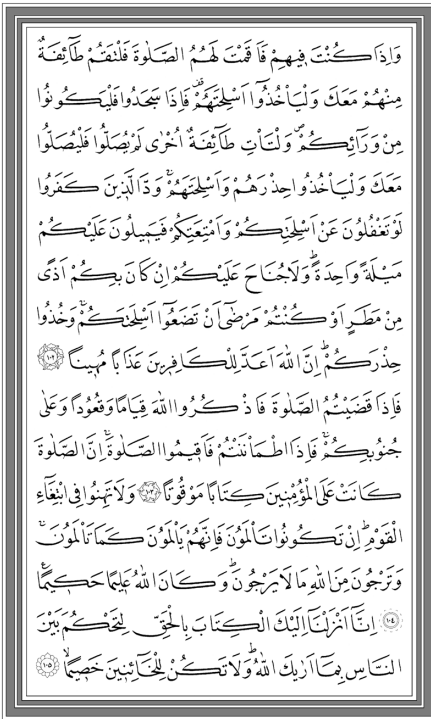 وَاِذَا كُنْتَ فٖيهِمْ فَاَقَمْتَ لَهُمُ الصَّلٰوةَ فَلْتَقُمْ طَٓائِفَةٌ
مِنْهُمْ مَعَكَ وَلْيَأْخُذُٓوا اَسْلِحَتَهُمْۜ فَاِذَا سَجَدُوا فَلْيَكُونُوا
مِنْ وَرَٓائِكُمْۖ وَلْتَأْتِ طَٓائِفَةٌ اُخْرٰى لَمْ يُصَلُّوا فَلْيُصَلُّوا
مَعَكَ وَلْيَأْخُذُوا حِذْرَهُمْ وَاَسْلِحَتَهُمْۚ وَدَّ الَّذٖينَ كَفَرُوا
لَوْ تَغْفُلُونَ عَنْ اَسْلِحَتِكُمْ وَاَمْتِعَتِكُمْ فَيَمٖيلُونَ عَلَيْكُمْ
مَيْلَةً وَاحِدَةًۜ وَلَا جُنَاحَ عَلَيْكُمْ اِنْ كَانَ بِكُمْ اَذًى
مِنْ مَطَرٍ اَوْ كُنْتُمْ مَرْضٰٓى اَنْ تَضَعُٓوا اَسْلِحَتَكُمْۚ وَخُذُوا
حِذْرَكُمْۜ اِنَّ اللّٰهَ اَعَدَّ لِلْكَافِرٖينَ عَذَابًا مُهٖينًا ﴿١٠٢﴾
فَاِذَا قَضَيْتُمُ الصَّلٰوةَ فَاذْكُرُوا اللّٰهَ قِيَامًا وَقُعُودًا وَعَلٰى
جُنُوبِكُمْۚ فَاِذَا اطْمَأْنَنْتُمْ فَاَقٖيمُوا الصَّلٰوةَۚ اِنَّ الصَّلٰوةَ
كَانَتْ عَلَى الْمُؤْمِنٖينَ كِتَابًا مَوْقُوتًا ﴿١٠٣﴾ وَلَا تَهِنُوا فِي ابْتِغَٓاءِ
الْقَوْمِۜ اِنْ تَكُونُوا تَأْلَمُونَ فَاِنَّهُمْ يَأْلَمُونَ كَمَا تَأْلَمُونَۚ
وَتَرْجُونَ مِنَ اللّٰهِ مَا لَا يَرْجُونَۜ وَكَانَ اللّٰهُ عَلٖيمًا حَكٖيمًاۚ
﴿١٠٤﴾ اِنَّٓا اَنْزَلْنَٓا اِلَيْكَ الْكِتَابَ بِالْحَقِّ لِتَحْكُمَ بَيْنَ
النَّاسِ بِمَٓا اَرٰيكَ اللّٰهُۜ وَلَا تَكُنْ لِلْخَٓائِنٖينَ خَصٖيمًاۙ ﴿١٠٥﴾